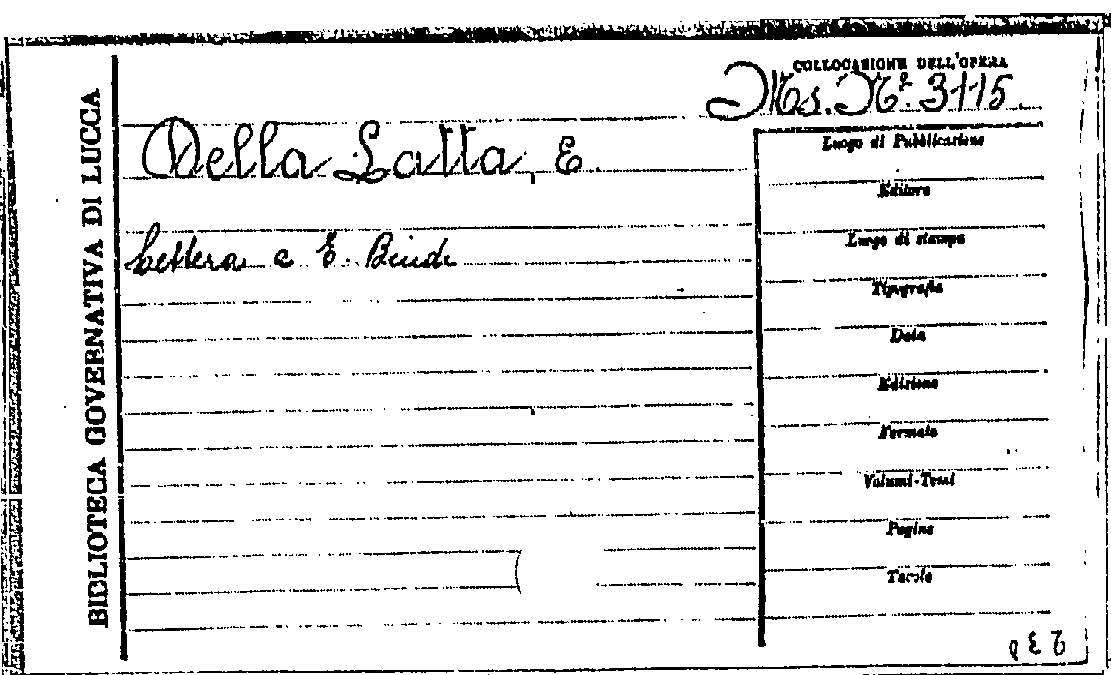 BIBLIOTECA GOVERNATIVA DI LUCCA
COLLOCAZIONE DELL'OPERA
Ms. N.º 3115
Della Latta, E.
Lettera a E. Bindi
Luogo di Pubblicazione
Editore
Luogo di stampa
Tipografia
Data
Edizione
Formato
Volumi-Tomi
Pagine
Tavole